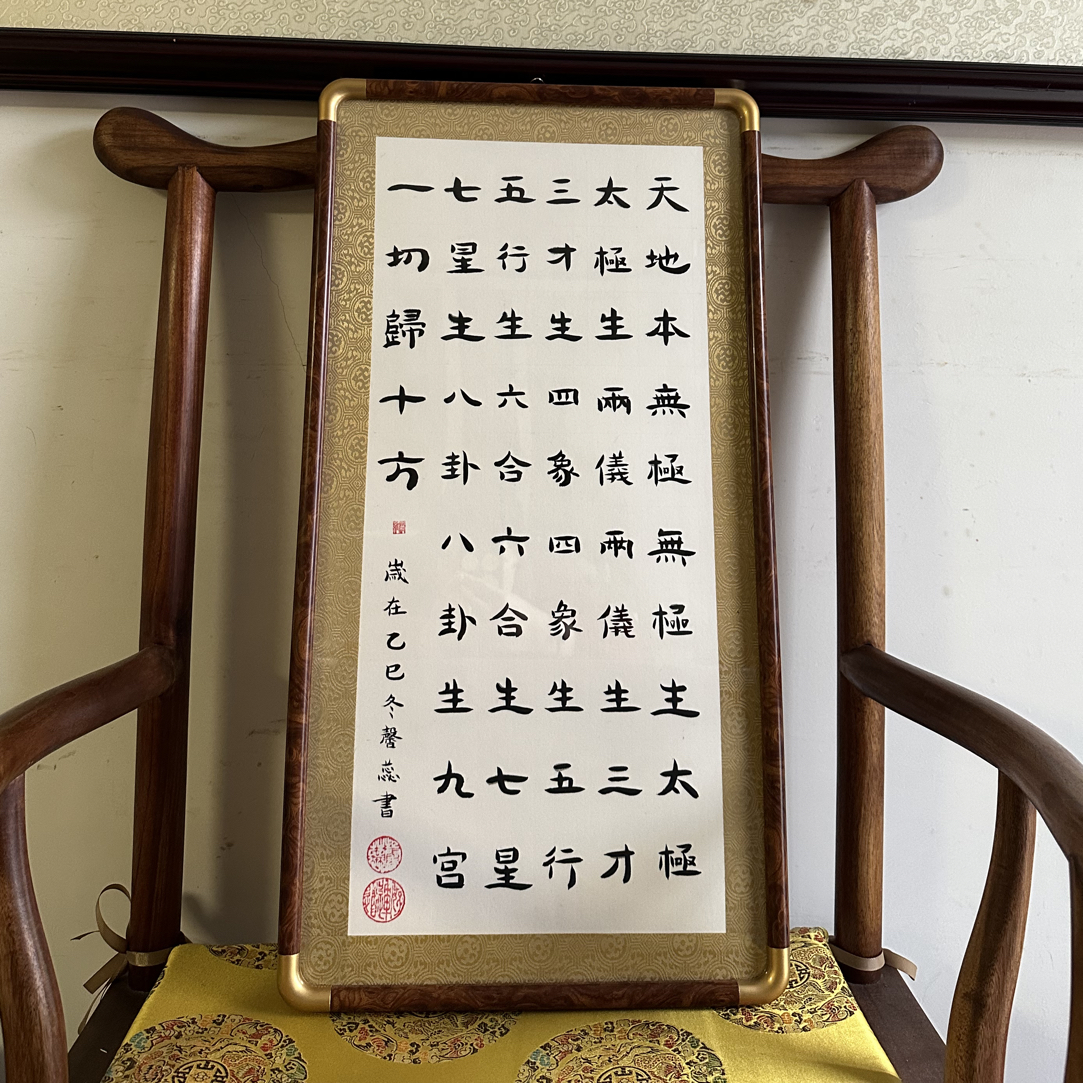 天地本無極無極生太極
太極生兩儀兩儀生三才
三才生四象四象生五行
五行生六合六合生七星
七星生八卦八卦生九宮
一切歸十方
歲在乙巳冬馨蕊書